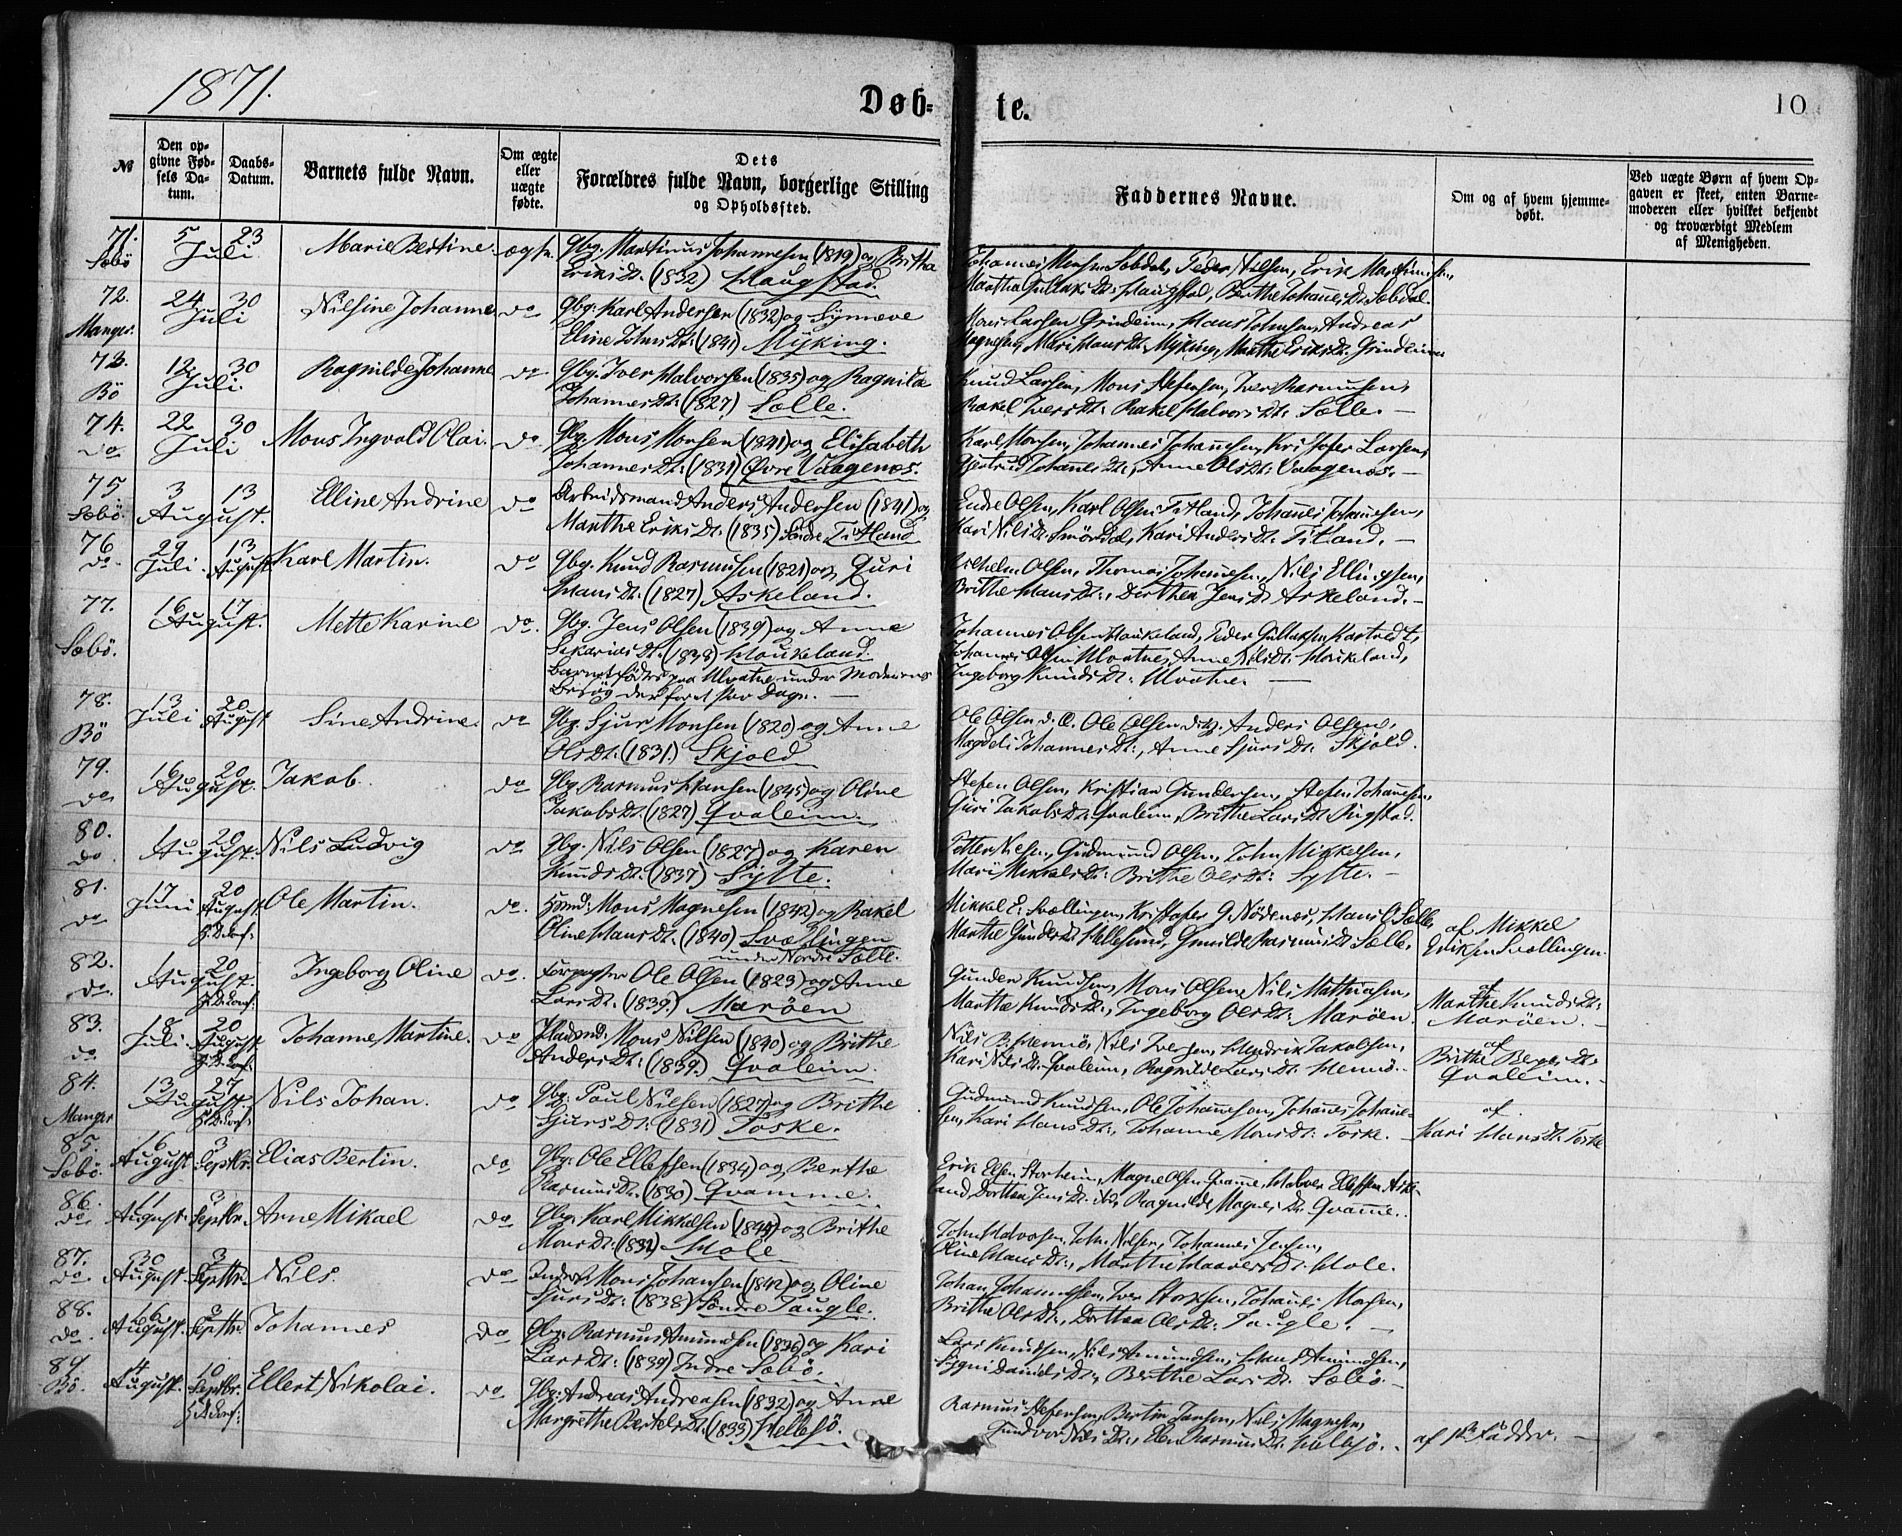 1871.
Døb-
te.
10
№
Den opgivne Fødsels Datum.
Daabs-Datum.
Barnets fulde Navn.
Om ægte eller uægte fødte.
Dets Forældres fulde Navn, borgerlige Stilling og Opholdssted.
Faddernes Navne.
Om og af hvem hjemmedøbt.
Ved uægte Børn af hvem Opgaven er skeet, enten Barnemoderen eller hvilket bekjendt og troværdigt Medlem af Menigheden.
71. Sæbö 5 Juli 23 Marie Bertine. ægte. Gbg. Martinus Johannesen (1819) og Britha
Eriks Dt. (1832) Haugstad.
Johannes Monsen Sæbdal, Peder Nilsen, Erik Martinusen,
Martha Gullaks Dt. Haugstad, Berthe Johannes Dt. Sæbdal.
72. Manger. 24 Juli 30 Nilsine Johanne do Gbg. Karl Andersen (1832) og Synneve
Eline Johns Dt. (1841) Myking.
Mons Larsen Grindeim, Hans Johnsen, Andreas
Magnesen, Mari Hans Dt. Myking, Marthe Eriks Dt. Grindeim
73. Bö 12 Juli. 30 Ragnilde Johanne do Gbg. Iver Halvorsen (1835) og Ragnilde
Johannes Dt. (1827) Sælle.
Knud Larsen, Mons Stefensen, Iver Rasmusen,
Rakel Ivers Dt. Rakel Halvors Dt. Sælle. —
74. do 22 Juli 30 Mons Ingvald Olai. do Gbg. Mons Monsen (1841) og Elisabeth
Johannes Dt. (1831) Øvre Vaagenes.
Karl Monsen, Johannes Johannesen, Kristofer Larsen,
Gjertrud Johannes Dt., Anne Ols Dt. Vaagenes. —
75 Sæbö. 3 August. 13 Elline Andrine do Arbeidsmand Anders Andersen (1841) og
Marthe Eriks Dt. (1835) Söndre Titland
Endre Olsen, Karl Olsen Titland, Johannes Johannesen,
Kari Nils Dt. Smördal, Kari Anders Dt. Titland. —
76 do. 29 Juli. 13 August. Karl Martin. do Gbg. Knud Rasmusen (1821) og Guri
Hans Dt. (1827) Askeland.
Vilhelm Olsen, Thomas Johannesen, Nils Ellingsen,
Brithe Hans Dt., Dorthea Jens Dt. Askeland. —
77. Sæbö. 16 August. 17 Mette Karine do. Gbg. Jens Olsen (1839) og Anne
Sakarias Dt. (1833) Haukeland.
Barnet födtes paa Ulvatne under Moderens
Besög der foret Par Dage. —
Johannes Olsen Haukeland, Peder Gullaksen Kartvedt,
Johannes Olsen Ulvatne, Anne Nils Dt. Haukeland,
Ingeborg Knuds Dt. Ulvatne. —
78. Bö 13 Juli 20 August Sine Andrine. do Gbg. Sjur Monsen (1820) og Anne
Ols Dt. (1831.) Skjold
Ole Olsen d. Æ. Ole Olsen d. y. Anders Olsen,
Magdeli Johannes Dt., Anne Sjurs Dt. Skjold.
79. do 16 August. 20 Jakob. do Gbg. Rasmus Hansen (1845) og Oline
Jakobs Dt. (1827) Qvaleim.
Stefen Olsen, Kristian Gundersen, Stefen Johannesen,
Guri Jakobs Dt. Qvaleim, Brithe Lars Dt. Ringstad.
80. do. 1 August. 20 Nils Ludvig do Gbg. Nils Olsen (1827) og Karen
Knuds Dt. (1837) Sylte.
Gudmund Olsen, John Mikkelsen,
Mari Mikkels Dt. Brithe Ols Dt. Sylte. —
81. do 17 Juni 20 August. Ole Martin. do. Hsmd. Mons Magnesen (1842) og Rakel
Oline Hans Dt. (1840) Svællingen
under Nordre Sælle.
Mikkel E. Svællingen, Kristofer G. Nödenes, Hans O. Sælle,
Marthe Gunders Dt. Hellesund, Gunilde Rasmus Dt. Sælle.
af Mikkel
Eriksen Svællingen.
82. do. 1 August. 20 Ingeborg Oline do. Forpagter Ole Olsen (1823) og Anne
Lars Dt. (1839.) Maröen
Gunder Knudsen, Mons Olsen, Nils Mathiasen,
Marthe Knuds Dt., Ingeborg Ols Dt. Maröen.
af
Marthe Knuds Dt.
Maröen. —
83. do 18 Juli 20 August Johanne Martine. do Pladsmd. Mons Nilsen (1840) og Brithe
Anders Dt. (1839.) Qvaleim.
Nils B. Hennö, Nils Iversen, Hendrik Jakobsen,
Kari Nils Dt. Qvaleim, Ragnilde Lars Dt. Hennö. —
af
Brithe Berges Dt.
Qvaleim. —
84. Manger 13 August. 27 Nils Johan. do Gbg. Paul Nilsen (1827) og Brithe
Sjurs Dt. (1831) Toske.
Gudmund Knudsen, Ole Johannesen, Johannes Johanne-
sen, Kari Hans Dt., Johanne Mons Dt. Toske. —
af
Kari Hans Dt. Toske
85. Sæbö. 16 August. 3 Septbr. Elias Bertin. do Gbg. Ole Ellefsen (1834) og Berthe
Rasmus Dt. (1830) Qvamme.
Erik Olsen Storheim, Magne Olsen Qvamme, Halvor Ellefsen Aske-
land, Dorthea Jens Dt. do, Ragnilde Magnes Dt. Qvamme.
86. do. 11 August. 3 Septbr. Arne Mikael do Gbg. Karl Mikkelsen (1844) og Brithe
Mons Dt. (1832) Hole
John Halvorsen, John Nilsen, Johannes Jensen,
Oline Hans Dt., Marthe Haavers Dt. Hole.
87. do 30 August. 3 Septbr. Nils. do Inderst Mons Johansen (1842) og Oline
Sjurs Dt. (1838) Söndre Taugle.
Johan Johannesen, Iver Torsen, Johannes Monsen,
Brithe Ols Dt., Dorthea Ols Dt. Taugle. —
88. do. 16 August. 3 Septbr. Johannes do Gbg. Rasmus Amundsen (1836) og Kari
Lars Dt. (1839) Indre Sæbö.
Lars Knudsen, Nils Amundsen, Hans Amundsen,
Signi Daniels Dt., Berthe Lars Dt. Sæbö. —
89. Bö. 4 August. 10 Septbr. Ellert Nikolai. do. Gbg. Andreas Andreasen (1832) og Anne
Margrethe Bertels Dt. (1833) Hellesö.
Rasmus Stefensen, Bertin Jansen, Nils Magnesen,
Gundvor Nils Dt., Ellen Rasmus Dt. Hellesö. —
af 1ste Fadder. —